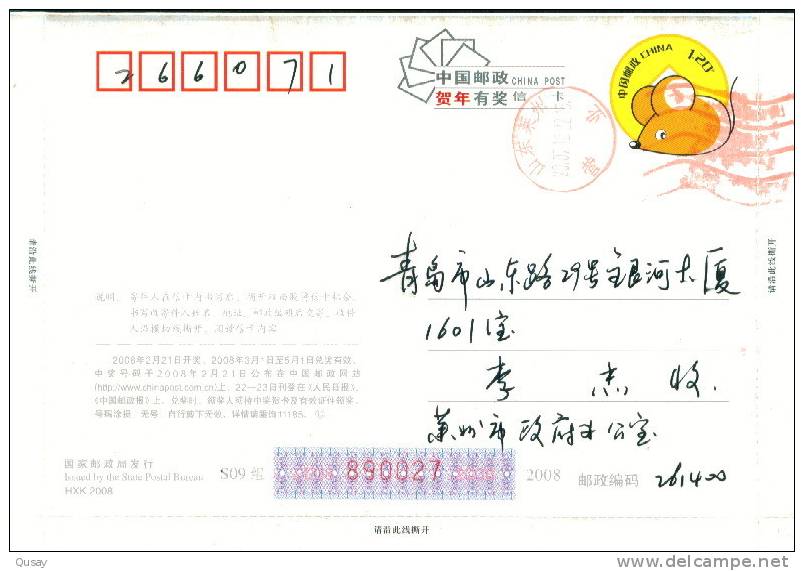 266071
中国邮政 CHINA POST
贺年有奖信 卡
中国邮政 CHINA 120
山东莱州
请沿此线撕开
请沿此线撕开
青岛市山东路29号银河大厦
1601室
李 杰 收
莱州市政府办公室
2008年2月21日开奖，2008年3月1日至5月1日兑奖有效，
中奖号码于2008年2月21日公布在中国邮政网站
(http://www.chinapost.com.cn)上，22—23日刊登在《人民日报》、
《中国邮政报》上。兑奖时，领奖人须持中奖贺卡及有效证件领奖。
号码涂损 无号 自行剪下无效。详情请垂询11185。
国家邮政局发行
Issued by the State Postal Bureau
HXK 2008
S09 组
890027
2008
邮政编码 261400
请沿此线撕开
Qusay
delcampe.net